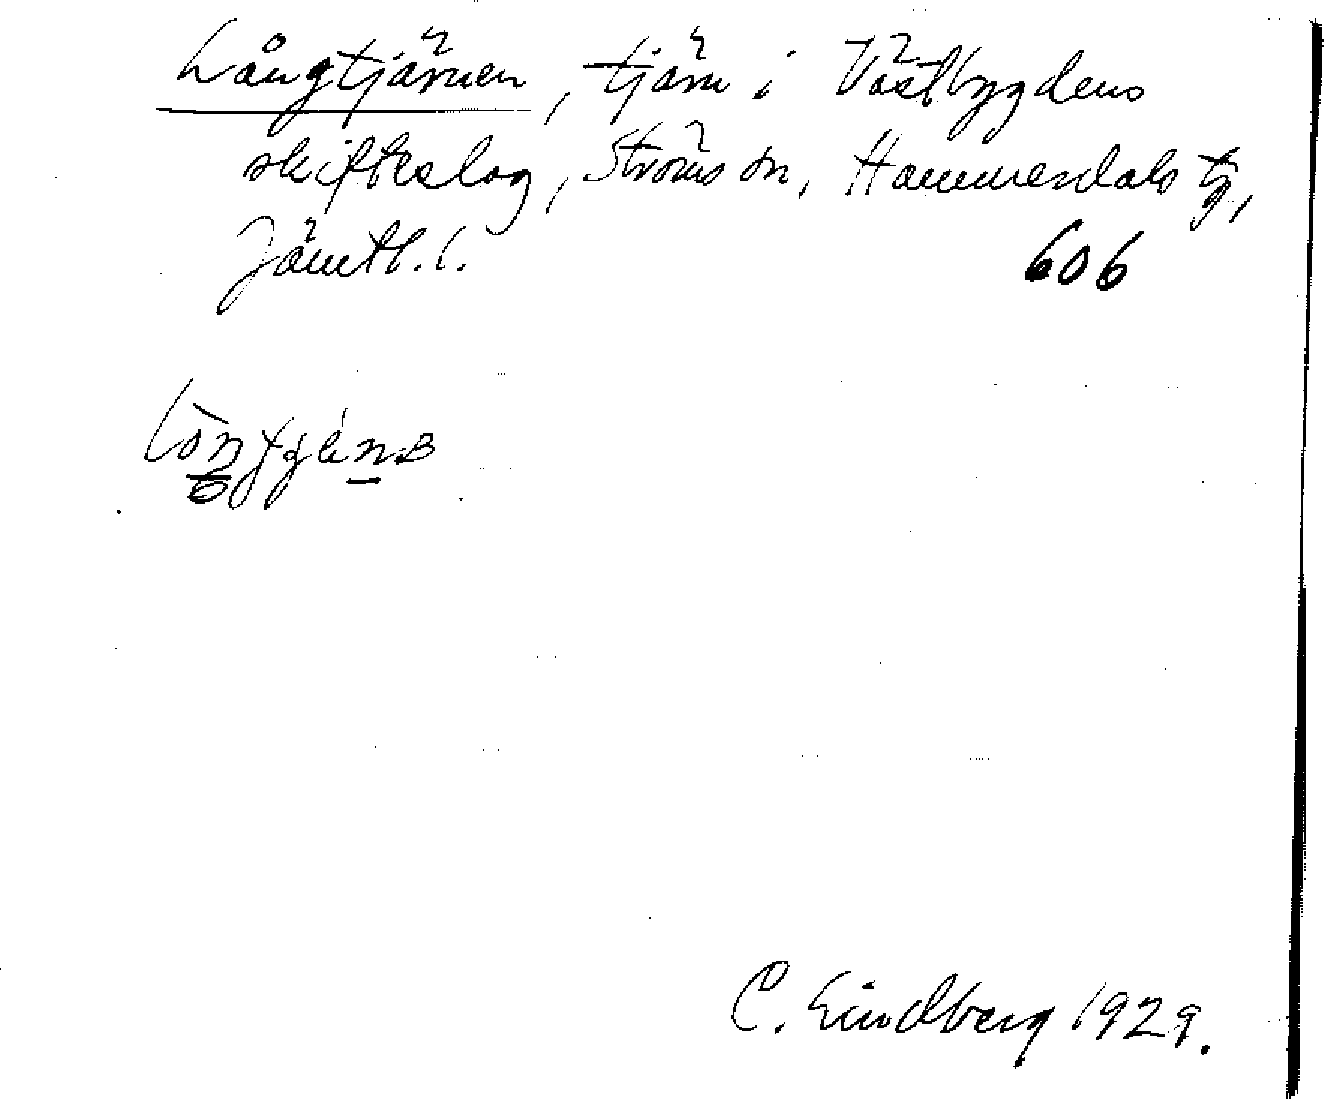 Långtjärnen, tjärn i Västbygdens
skifteslag, Ströms sn, Hammerdals tg,
Jämtl. l.
606
C. Lindberg 1929.